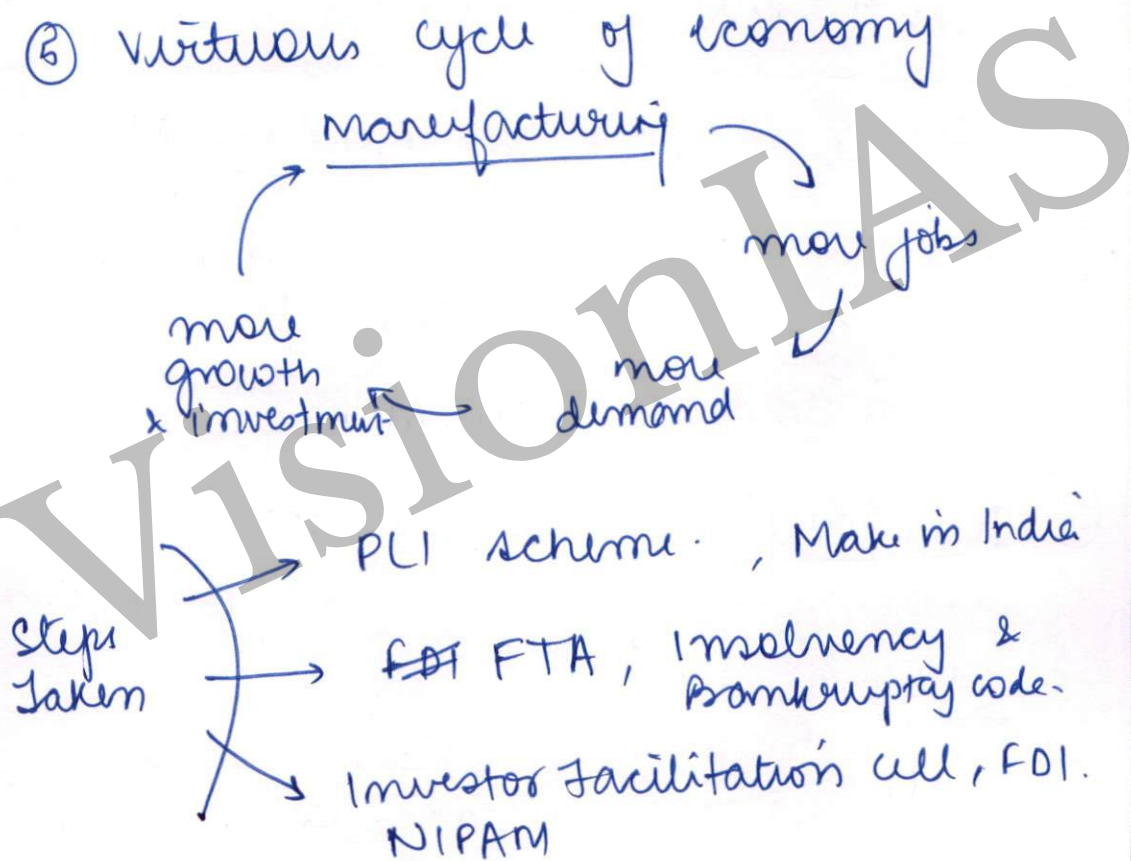 ⑤ virtuous cycle of economy
manufacturing
more jobs
more
demand
more
growth
& investment
Steps
Taken
PLI scheme. , Make in India
FDI FTA, Insolvency &
Bankruptcy code.
Investor Facilitation cell, FDI.
NIPAM
VisionIAS